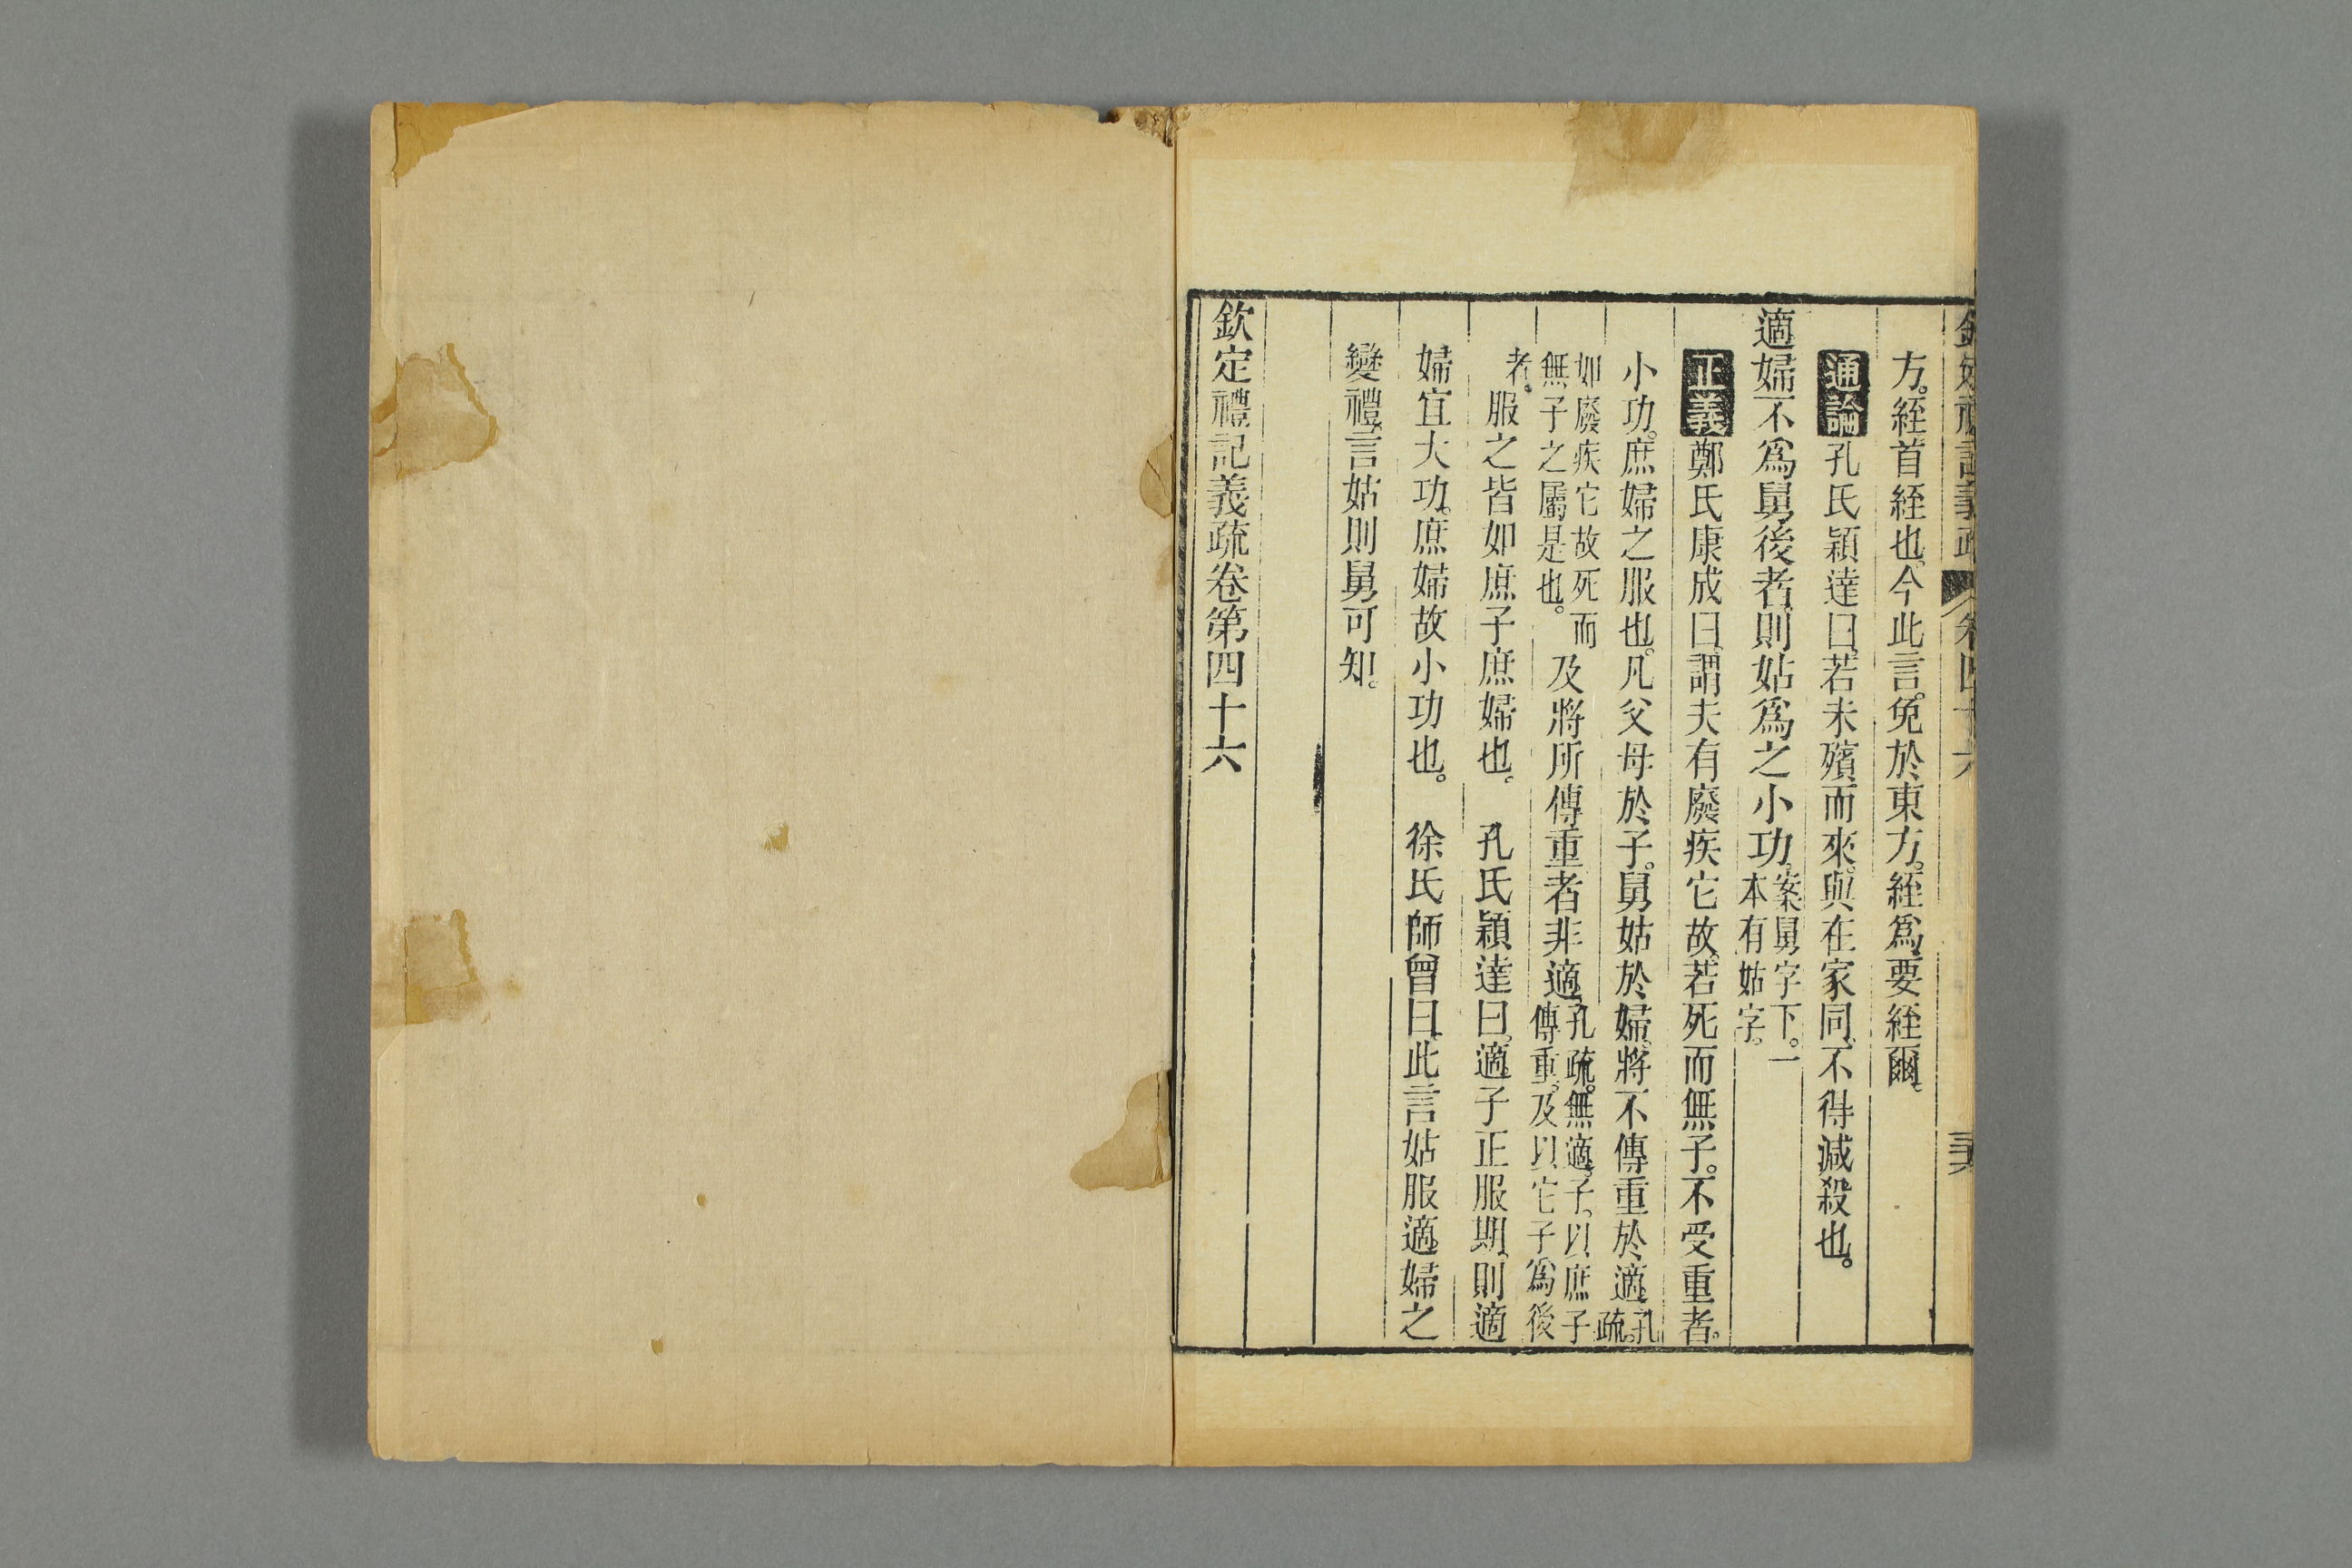 方。絰首絰也。今此言。免於東方。絰爲要絰爾。
通論孔氏穎達曰。若未殯而來。與在家同。不得減殺也。
適婦不爲舅後者。則姑爲之小功。案舅字下。一本有姑字。
正義鄭氏康成曰。謂夫有廢疾它故。若死而無子。不受重者。
小功。庶婦之服也。凡父母於子。舅姑於婦。將不傳重於適。孔疏。
如廢疾它故死而無子之屬是也。及將所傳重者非適。孔疏。無適子。以庶子傳重。及以它子爲後
者。服之皆如庶子庶婦也。 孔氏穎達曰。適子正服期。則適
婦宜大功。庶婦故小功也。 徐氏師曾曰。此言姑服適婦之
變禮。言姑則舅可知。
欽定禮記義疏卷第四十六